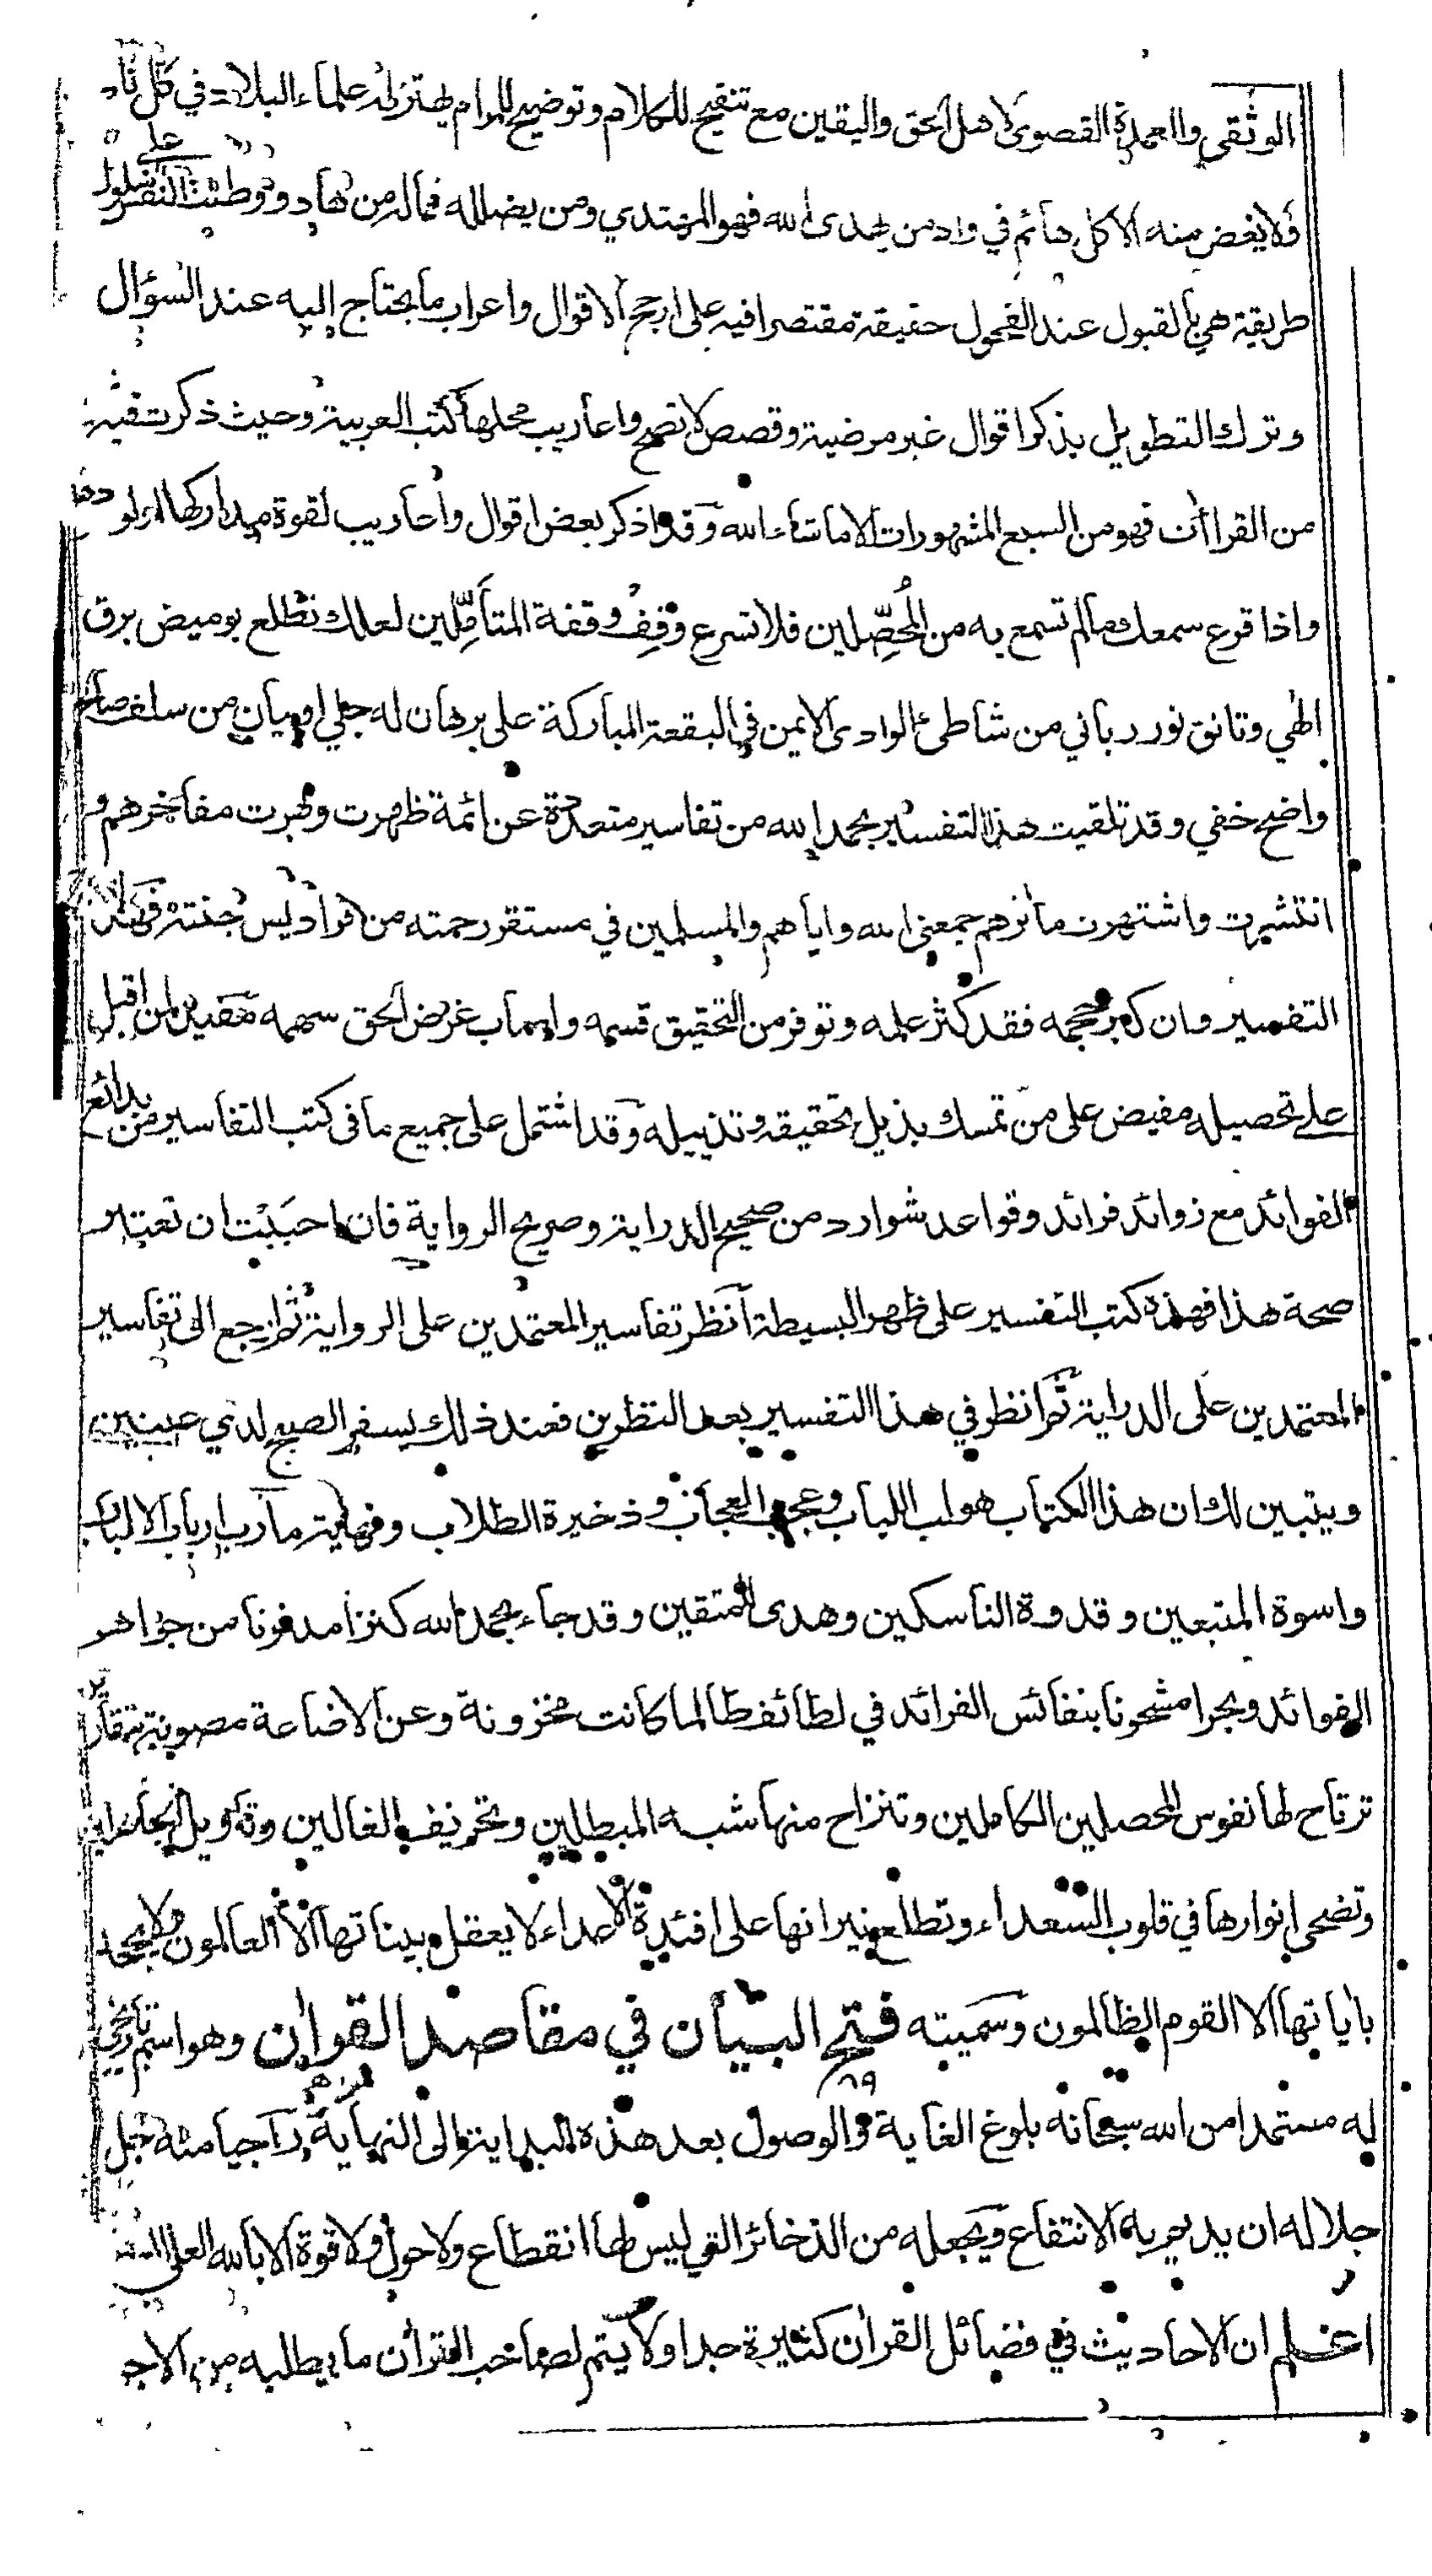 الوثقى والعمدة القصوى لاهل الحق واليقين مع تنقيح للكلام وتوضيح للمرام يهتزله علماء البلاد في كل ناد
فلا يغض منه الا كل هائم في واد من يهدى الله فهو المهتدي ومن يضلله فماله من هاد ووطنت النفس على سلوك
طريقة هي بالقبول عند الفحول حقيقة مقتصرا فيه على ارجح الاقوال واعراب ما يحتاج اليه عند السؤال
وترك التطويل بذكر اقوال غير مرضية وقصص لا تصح واعاريب محلها كتب العربية وحيث ذكرت فيه
من القراأت فهو من السبع المشهورات الا ما شاء الله وقد اذكر بعض اقوال واعاريب لقوة مداركها او لو
واذا قرع سمعك ما لم تسمع به من المُحصِّلين فلا تسرع وقِفْ وقفة المتأمِّلين لعلك تطلع بوميض برق
الهي وتانق نور رباني من شاطئ الوادى الايمن في البقعة المباركة على برهان له جلي او بيان من سلف صالح
واضح خفي وقد تلقيت هذا التفسير بحمد الله من تفاسير متعددة عن ائمة ظهرت وبهرت مفاخرهم و
انتشرت واشتهرت مأثرهم جمعني الله واياهم والمسلمين في مستقر رحمته من فراديس جنته فهذا
التفسير وان كبر حجمه فقد كثر علمه وتوفر من التحقيق قسمه واصاب غرض الحق سهمه مفيد لمن اقبل
على تحصيله مفيض على من تمسك بذيل تحقيقه وتذييله وقد اشتمل على جميع ما فى كتب التفاسير من بدائع
الفوائد مع زوائد فرائد وقواعد شوارد من صحيح الدراية وصريح الرواية فان احببت ان تعتبر
صحة هذا فهذه كتب التفسير على ظهر البسيطة انظر تفاسير المعتمدين على الرواية ثم ارجع الى تفاسير
المعتمدين على الدراية ثم انظر في هذا التفسير بعد النظرين فعند ذلك يسفر الصبح لذي عينين
ويتبين لك ان هذا الكتاب هو لب اللباب وعجب العجاب وذخيرة الطلاب ونهاية مأرب ارباب الالباب
واسوة المتبعين وقدوة الناسكين وهدى للمتقين وقد جاء بحمد الله كنزا مدفونا من جواهر
الفوائد وبحرا مشحونا بنفائس الفرائد في لطائف طالما كانت مخزونة وعن الاضاعة مصونة
ترتاح لها نفوس المحصلين الكاملين وتنزاح منها شبه المبطلين وتحريف الغالين وتأويل الجاهلين
وتضحى انوارها في قلوب السعداء وتطلع نيرانها على افئدة الاعداء لا يعقل بيناتها الا العالمون ولا يجحد
باياتها الا القوم الظالمون وسميته فتح البيان في مقاصد القران وهو اسم تاريخي
٨٩
له مستمدا من الله سبحانه بلوغ الغاية والوصول بعد هذه البداية الى النهاية راجيا منه جل
جلاله ان يديم به الانتفاع ويجعله من الذخائر التي ليس لها انقطاع ولا حول ولا قوة الا بالله العلي
اعلم ان الاحاديث في فضائل القران كثيرة جدا ولا يتم لصاحب القرأن ما يطلبه من الاجر